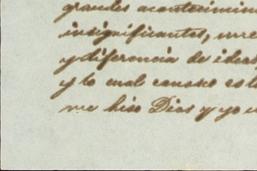 grandes acontecimien
insignificantes, vere
y diferencia de ideas
y lo cual
me hiso Dios y yo